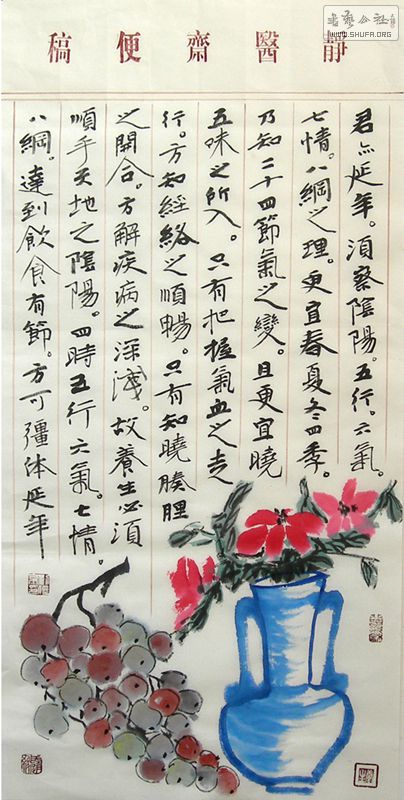 靜醫齋便稿
书艺公社
WWW.SHUFA.ORG
君亦延年。須察陰陽。五行。六氣。
七情。八綱之理。更宜春夏冬四季。
乃知二十四節氣之變。且更宜曉
五味之所入。只有把握氣血之走
行。方知經絡之順暢。只有知曉腠理
之開合。方解疾病之深淺。故養生必須
順乎天地之陰陽。四時五行六氣。七情。
八綱。達到飲食有節。方可彊体延年